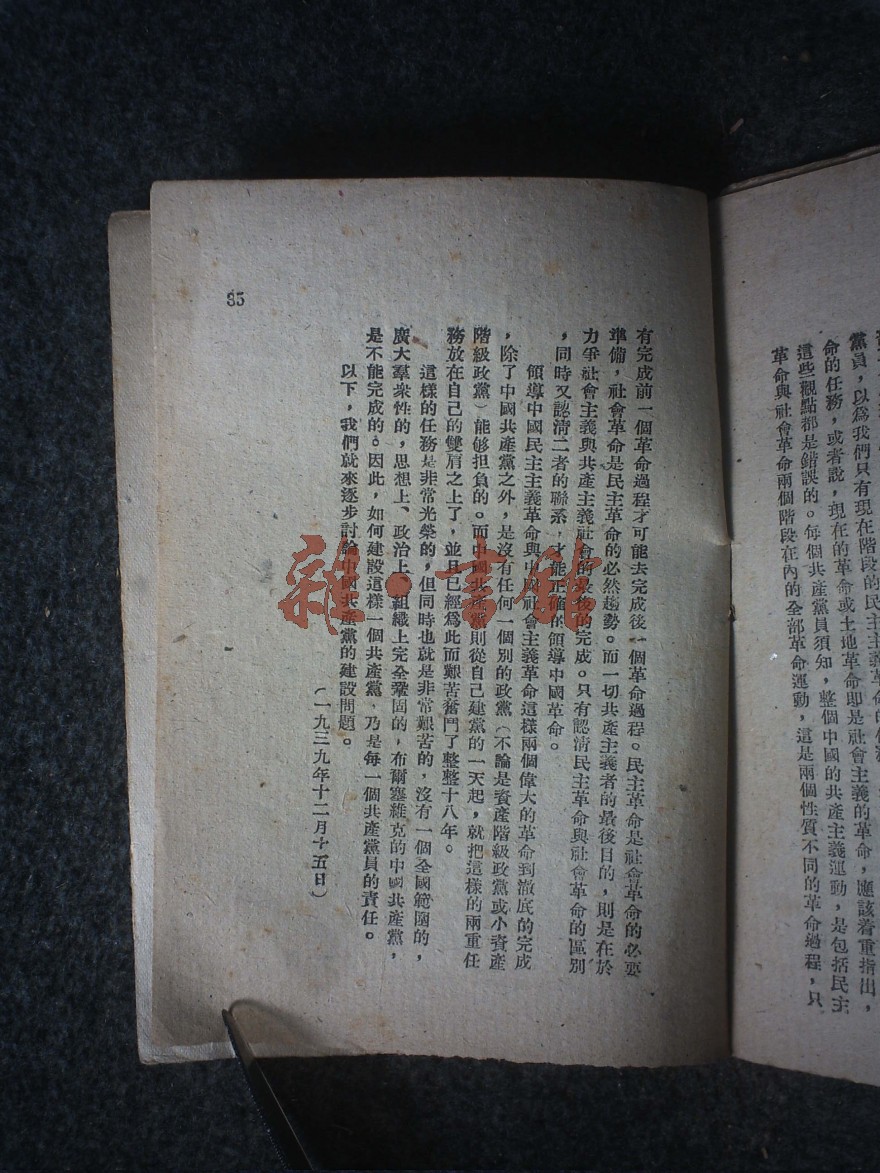 黨員，以爲我們只有現在階段的民主主義革命的任務，
命的任務，或者說，現在的革命或土地革命即是社會主義的革命，應該着重指出，
這些觀點都是錯誤的。每個共產黨員須知，整個中國的共產主義運動，是包括民主
革命與社會革命兩個階段在內的全部革命運動，這是兩個性質不同的革命過程，只
有完成前一個革命過程才可能去完成後一個革命過程。民主革命是社會革命的必要
準備，社會革命是民主革命的必然趨勢。而一切共產主義者的最後目的，則是在於
力爭社會主義與共產主義社會的最後的完成。只有認清民主革命與社會革命的區別
，同時又認清二者的聯系，才能正確的領導中國革命。
領導中國民主主義革命與中國社會主義革命這樣兩個偉大的革命到澈底的完成
，除了中國共產黨之外，是沒有任何一個別的政黨（不論是資產階級政黨或小資產
階級政黨）能够担負的。而中國共產黨則從自己建黨的一天起，就把這樣的兩重任
務放在自己的雙肩之上了，並且已經爲此而艱苦奮鬥了整整十八年。
這樣的任務是非常光榮的，但同時也就是非常艱苦的，沒有一個全國範圍的，
廣大羣衆性的，思想上、政治上、組織上完全鞏固的，布爾塞維克的中國共產黨，
是不能完成的。因此，如何建設這樣一個共產黨，乃是每一個共產黨員的責任。
以下，我們就來逐步討論中國共產黨的建設問題。
（一九三九年十二月十五日）
35
雜·書館